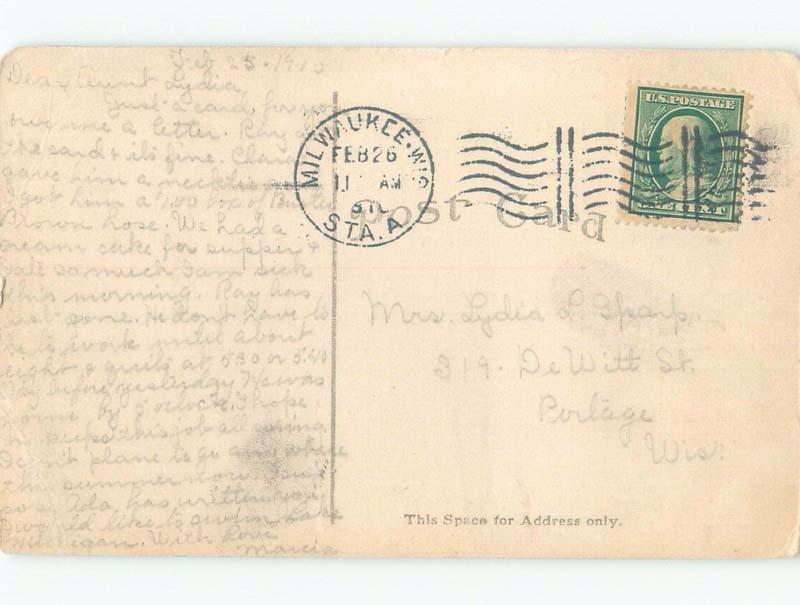 Feb 25. 1910
Dear Aunt Lydia,
Just a card, for you
owe me a letter. Ray
the card & its fine. Clara
gave him a necktie and
I got him a 1.00 box of Buster
Brown hose. We had a
cream cake for supper &
I ate so much I am sick
this morning. Ray has
just gone. He don't have to
go to work until about
eight & quits at 5:30 or 5:40
Day before yesterday He was
home by 5 o'clock. I hope
he keeps this job all
Don't plan to go any where
this summer now.
Ada has written you
would like to Lake
Michigan. With love
Marcia
MILWAUKEE, WIS
FEB 26
11 AM
STA. A
Post Card
U.S. POSTAGE
ONE CENT
Mrs. Lydia L.
319. De Witt St.
Portage
Wis.
This Space for Address only.